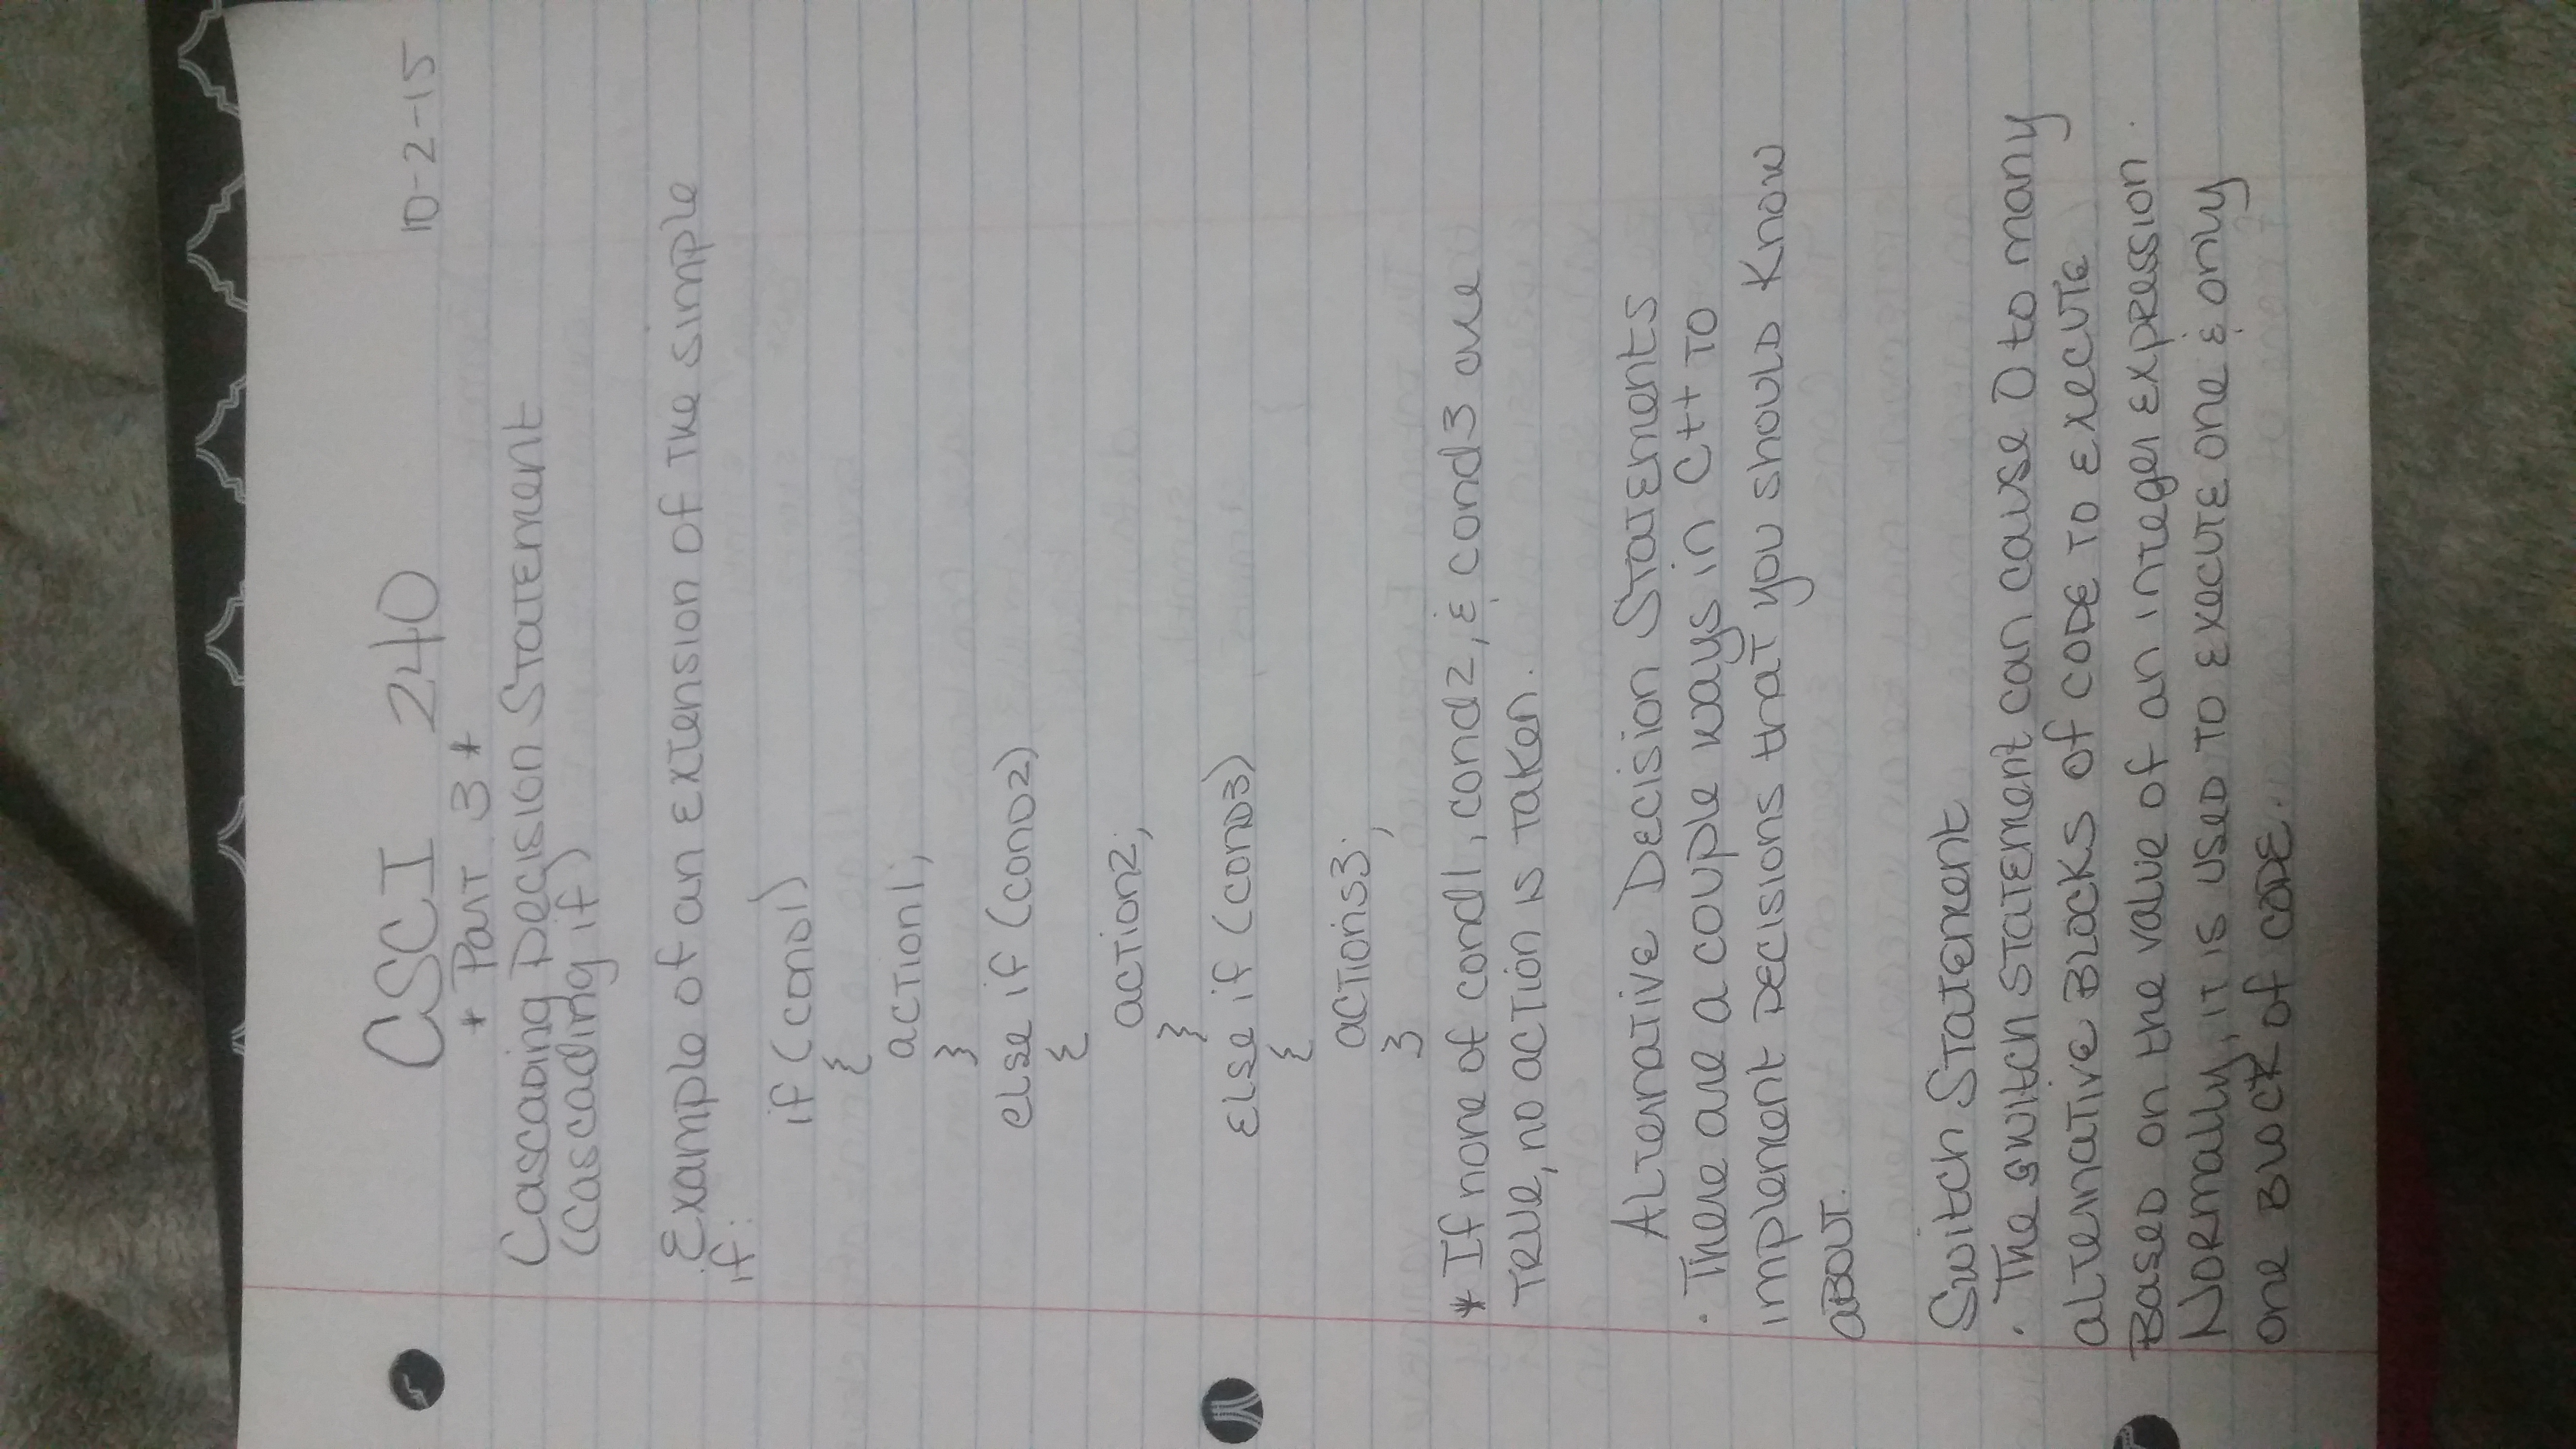 CSCI 240 10-2-15
* Part 3 *
Cascading Decision Statement
(cascading if)
Example of an extension of the simple
if:
if (cond1)
{
action1;
}
else if (cond2)
{
action2;
}
else if (cond3)
{
actions3;
}
* If none of cond1, cond2, & cond3 are
true, no action is taken.
Alternative Decision Statements
· There are a couple ways in C++ to
implement decisions that you should know
about.
Switch Statement
· The switch statement can cause 0 to many
alternative blocks of code to execute
based on the value of an integer expression.
Normally, it is used to execute one & only
one block of code.